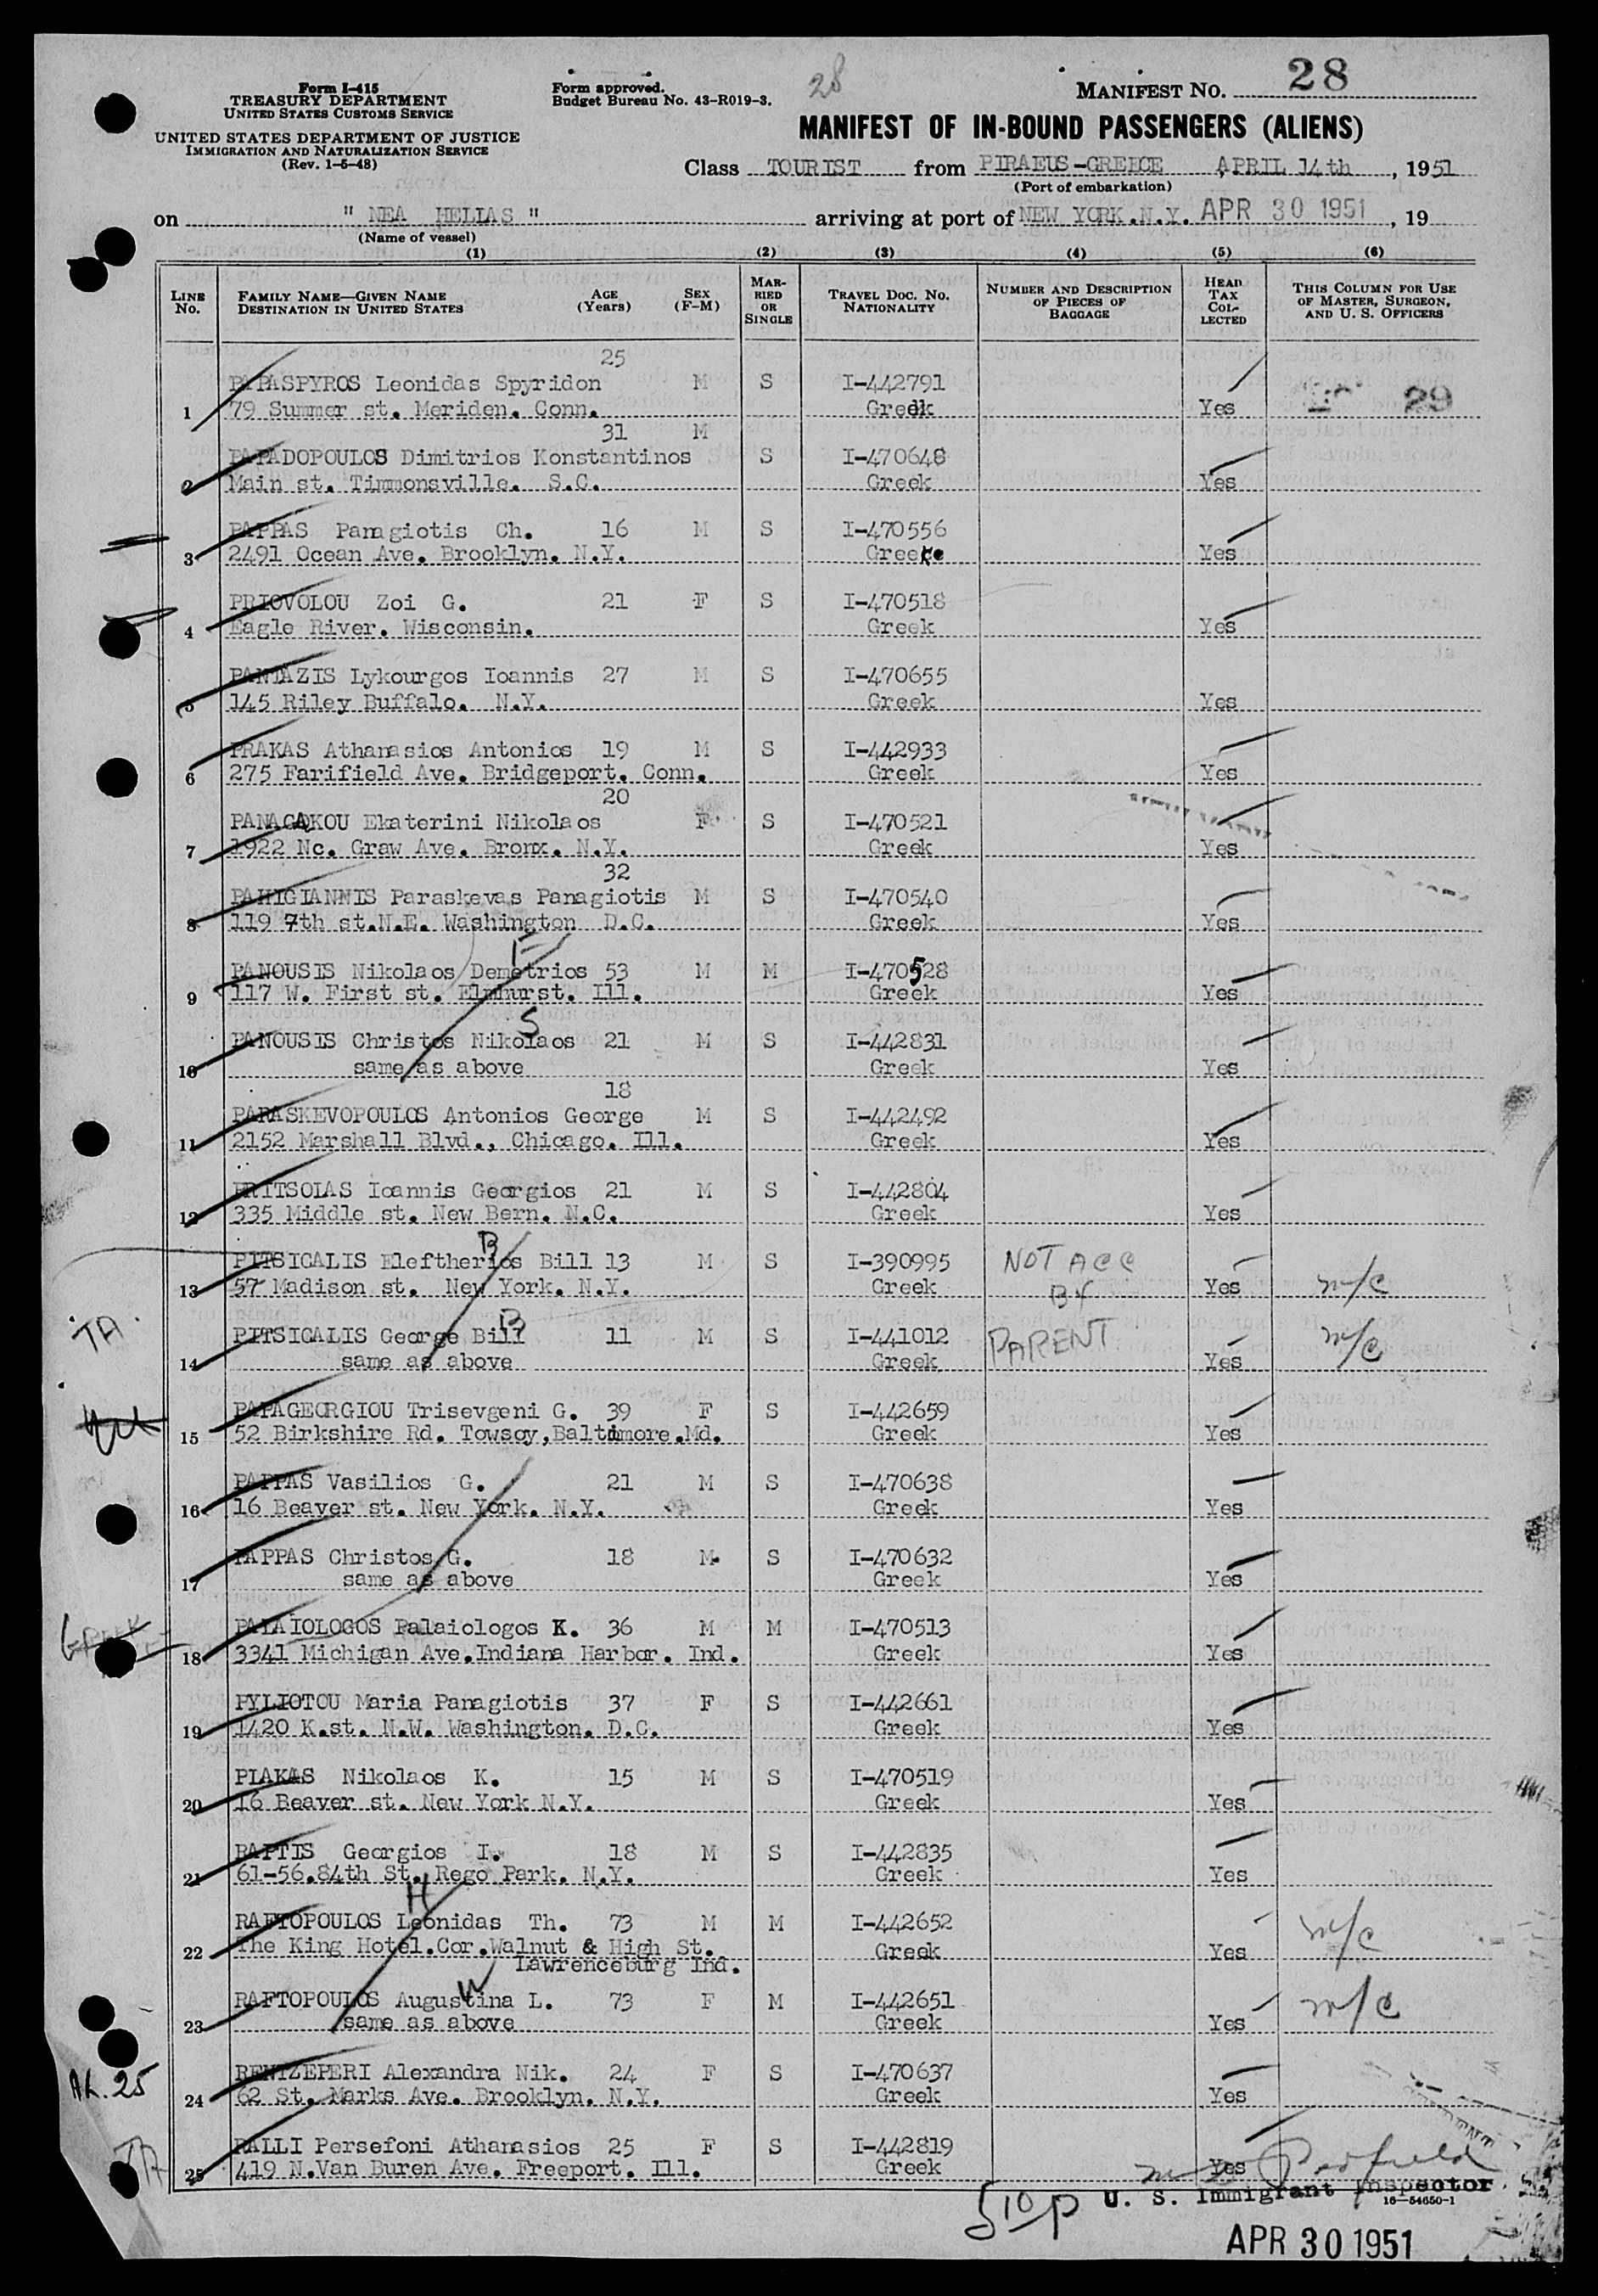 Form I-415
TREASURY DEPARTMENT
UNITED STATES CUSTOMS SERVICE
UNITED STATES DEPARTMENT OF JUSTICE
IMMIGRATION AND NATURALIZATION SERVICE
(Rev. 1-5-48)
Form approved.
Budget Bureau No. 43-R019-3.
28
MANIFEST NO. 28
MANIFEST OF IN-BOUND PASSENGERS (ALIENS)
Class TOURIST from PIRAEUS-GREECE APRIL 14th, 1951
(Port of embarkation)
on " NEA HELLAS " arriving at port of NEW YORK.N.Y. APR 30 1951, 19
(Name of vessel)
(1) (2) (3) (4) (5) (6)
LINE NO. FAMILY NAME—GIVEN NAME DESTINATION IN UNITED STATES AGE (Years) SEX (F-M) MARRIED OR SINGLE TRAVEL DOC. NO. NATIONALITY NUMBER AND DESCRIPTION OF PIECES OF BAGGAGE HEAD TAX COLLECTED THIS COLUMN FOR USE OF MASTER, SURGEON, AND U. S. OFFICERS
25
PAPASPYROS Leonidas Spyridon M S I-442791
1 79 Summer st. Meriden. Conn. Greek Yes 29
31 M
PAPADOPOULOS Dimitrios Konstantinos S I-470648
2 Main st. Timmonsville. S.C. Greek Yes
PAPPAS Panagiotis Ch. 16 M S I-470556
3 2491 Ocean Ave. Brooklyn. N.Y. Greece Yes
PRIOVOLOU Zoi G. 21 F S I-470518
4 Eagle River. Wisconsin. Greek Yes
PANTAZIS Lykourgos Ioannis 27 M S I-470655
5 145 Riley Buffalo. N.Y. Greek Yes
PRAKAS Athanasios Antonios 19 M S I-442933
6 275 Farifield Ave. Bridgeport. Conn. Greek Yes
20
PANAGAKOU Ekaterini Nikolaos F S I-470521
7 1922 Nc. Graw Ave. Bronx. N.Y. Greek Yes
32
PAHIGIANNIS Paraskevas Panagiotis M S I-470540
8 119 7th st.N.E. Washington D.C. Greek Yes
F
PANOUSIS Nikolaos Demetrios 53 M M I-470528
9 117 W. First st. Elmhurst. Ill. Greek Yes
S
PANOUSIS Christos Nikolaos 21 M S I-442831
10 same as above Greek Yes
18
PARASKEVOPOULOS Antonios George M S I-442492
11 2152 Marshall Blvd., Chicago. Ill. Greek Yes
PRITSOLAS Ioannis Georgios 21 M S I-442804
12 335 Middle st. New Bern. N.C. Greek Yes
B
PITSICALIS Eleftherios Bill 13 M S I-390995 NOT ACC
13 57 Madison st. New York. N.Y. Greek BY Yes m/c
B
TA PITSICALIS George Bill 11 M S I-441012 PARENT m/c
14 same as above Greek Yes
PAPAGEORGIOU Trisevgeni G. 39 F S I-442659
15 52 Birkshire Rd. Towsoy,Baltimore.Md. Greek Yes
PAPPAS Vasilios G. 21 M S I-470638
16 16 Beaver st. New York. N.Y. Greek Yes
PAPPAS Christos G. 18 M S I-470632
17 same as above Greek Yes
PALAIOLOGOS Palaiologos K. 36 M M I-470513
18 3341 Michigan Ave.Indiana Harbor. Ind. Greek Yes
PYLIOTOU Maria Panagiotis 37 F S I-442661
19 1420 K.st. N.W. Washington. D.C. Greek Yes
PLAKAS Nikolaos K. 15 M S I-470519
20 16 Beaver st. New York N.Y. Greek Yes
RAPTIS Georgios I. 18 M S I-442835
21 61-56.84th St. Rego Park. N.Y. Greek Yes
H
RAFTOPOULOS Leonidas Th. 73 M M I-442652 m/c
22 The King Hotel.Cor.Walnut & High St. Greek Yes
Lawrenceburg Ind.
W
RAFTOPOULOS Augustina L. 73 F M I-442651 m/c
23 same as above Greek Yes
AL.25 RENTZEPERI Alexandra Nik. 24 F S I-470637
24 62 St. Marks Ave. Brooklyn. N.Y. Greek Yes
TA RALLI Persefoni Athanasios 25 F S I-442819
25 419 N.Van Buren Ave. Freeport. Ill. Greek Yes
510p U. S. Immigrant Inspector
16—54650-1
APR 30 1951